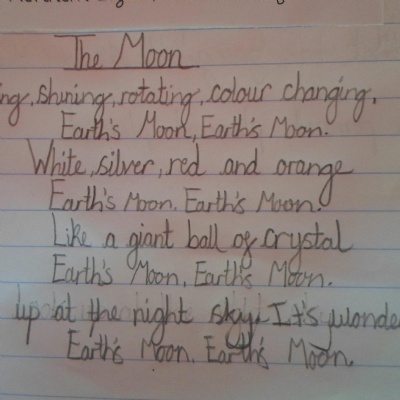 The Moon
ng, shining, rotating, colour changing,
Earth's Moon, Earth's Moon.
White, silver, red and orange
Earth's Moon. Earth's Moon.
Like a giant ball of crystal
Earth's Moon, Earth's Moon.
up at the night sky. It's wonde
Earth's Moon. Earth's Moon.